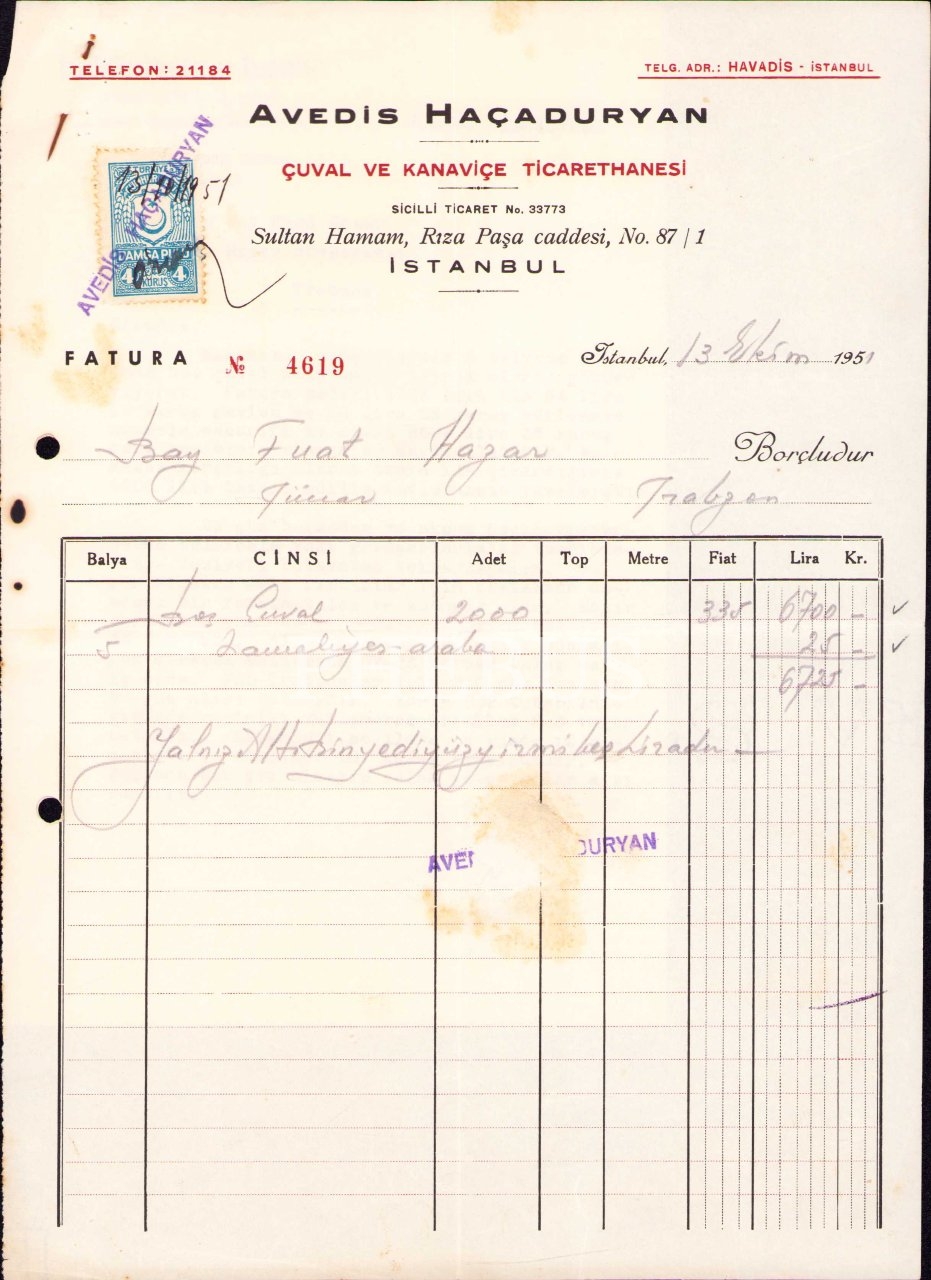 TELEFON: 21184
TELG. ADR.: HAVADİS - İSTANBUL
AVEDİS HAÇADURYAN
ÇUVAL VE KANAVİÇE TİCARETHANESİ
SİCİLLİ TİCARET No. 33773
Sultan Hamam, Rıza Paşa caddesi, No. 87 / 1
İSTANBUL
AVEDİS HAÇADURYAN
13/10/1951
DAMGA PULU
4 4
KURUŞ
FATURA № 4619
İstanbul, 13 Ekim 1951
Bay Fuat Hazar Borçludur
Trabzon
Balya CİNSİ Adet Top Metre Fiat Lira Kr.
Boş Çuval 2000 335 6700 -
5 hamaliye araba 25 -
6725 -
Yalnız Altıbinyediyüzyirmibeş Liradır
AVEDİ DURYAN